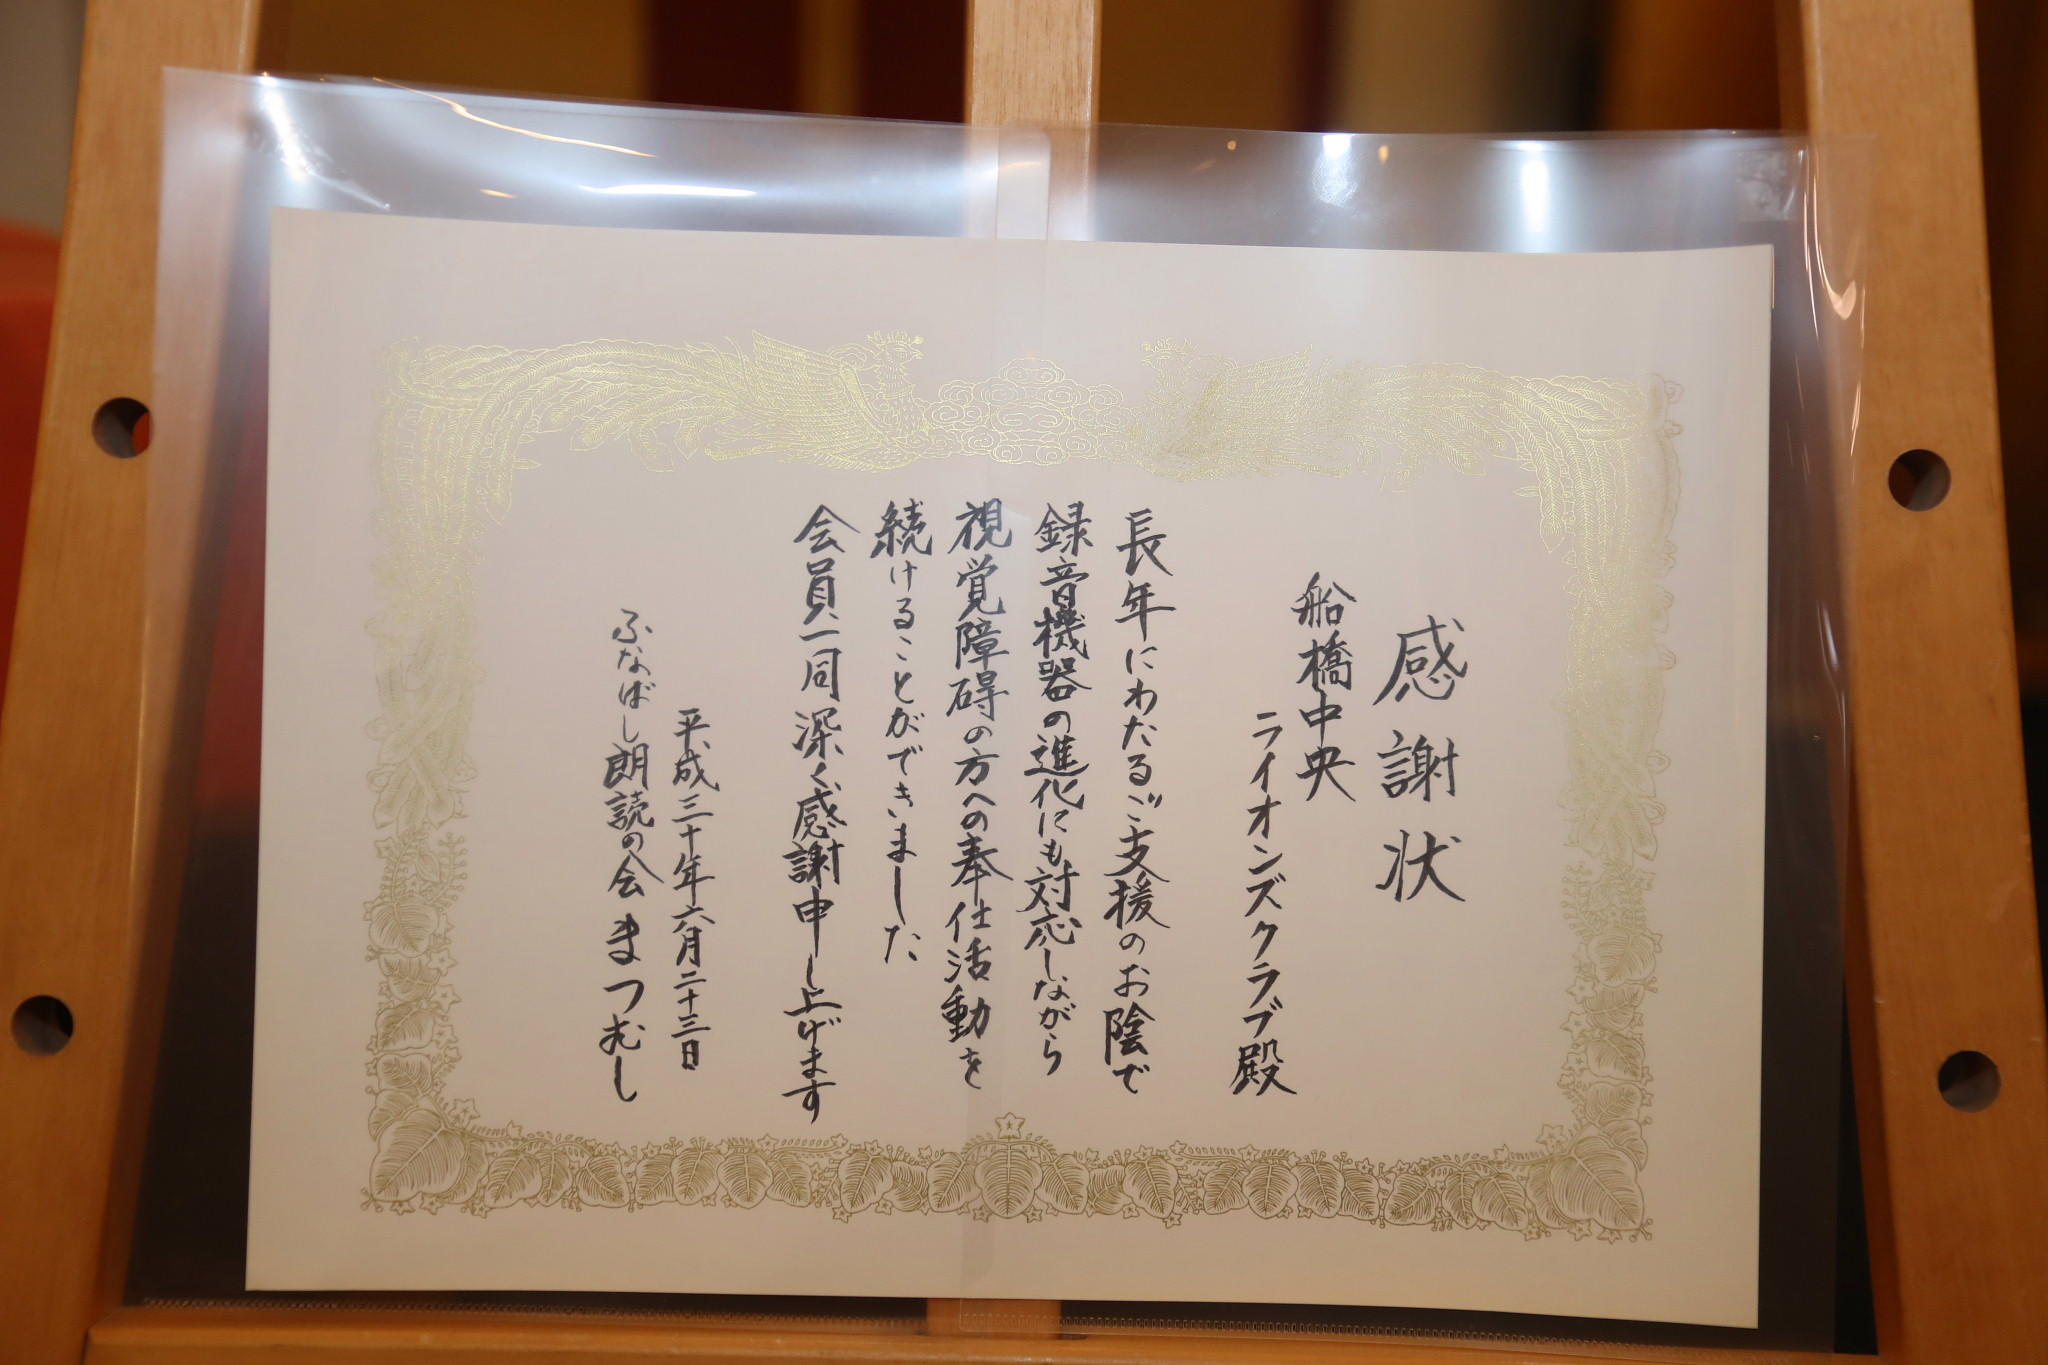 感謝状
船橋中央
ライオンズクラブ殿
長年にわたるご支援のお陰で
録音機器の進化にも対応しながら
視覚障碍の方への奉仕活動を
続けることができました
会員一同深く感謝申し上げます
平成三十年六月二十三日
ふなばし朗読の会まつむし